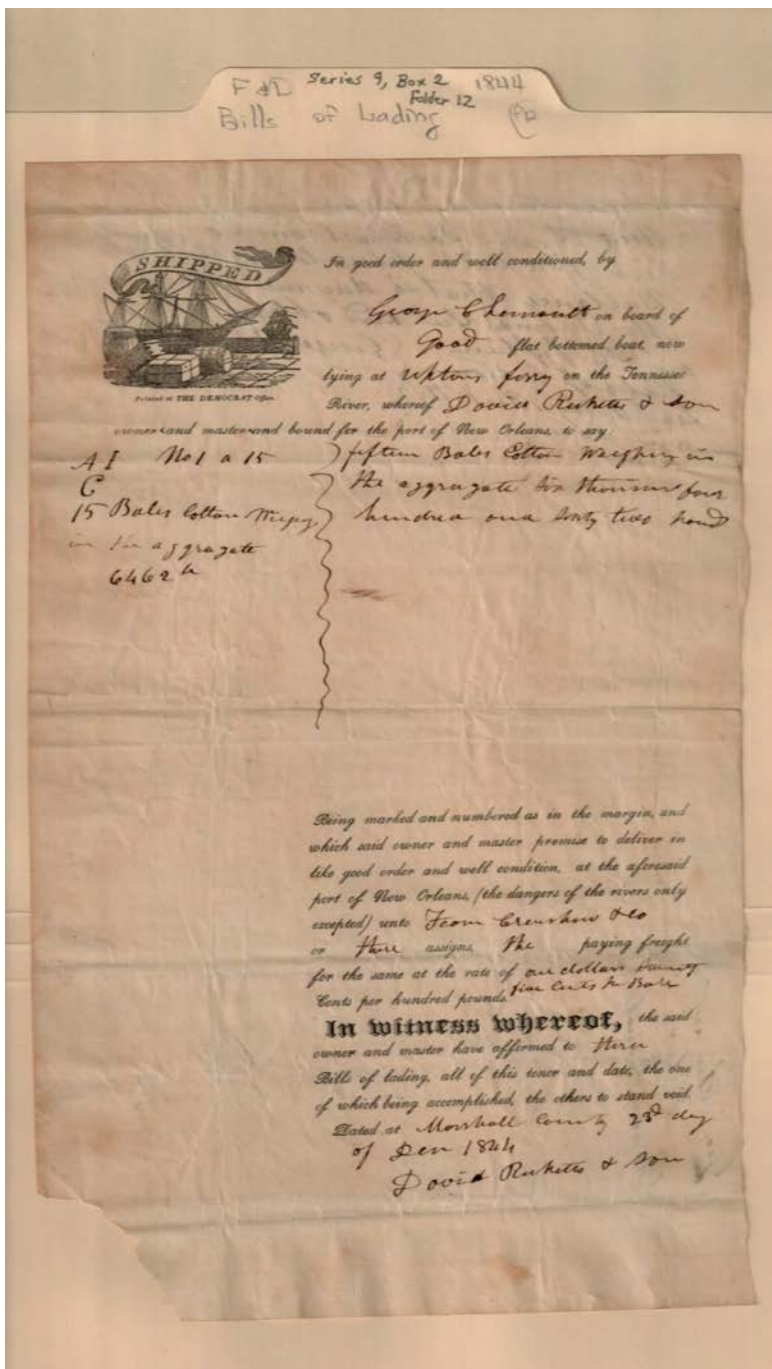 F & D Series 9, Box 2 1844
Folder 12
Bills of Lading
SHIPPED
Printed at THE DEMOCRAT Office.
In good order and well conditioned, by
George on board of
Good flat bottomed boat, now
lying at ferry on the Tennessee
River, whereof David Ricketts & son
owner and master and bound for the port of New Orleans, to say:
A I No 1 a 15
C
15 Bales Cotton
in the aggragate
6462
fifteen Bales Cotton in
the aggragate six four
hundred and sixty two
Being marked and numbered as in the margin, and
which said owner and master promise to deliver in
like good order and well condition, at the aforesaid
port of New Orleans, (the dangers of the rivers only
excepted) unto Crenshaw & co
or assigns, paying freight
for the same at the rate of one dollars
five Cents Bale
Cents per hundred pounds.
In witness whereof, the said
owner and master have affirmed to
Bills of lading, all of this tenor and date, the one
of which being accomplished, the others to stand void
Dated at Marshall County 23d day
of 1844
David Ricketts & son